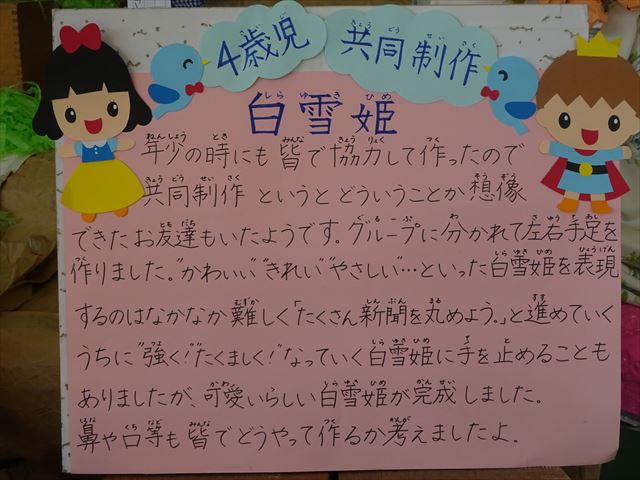 4歳児 共同制作
白雪姫
年少の時にも皆で協力して作ったので
共同制作というとどういうことか想像
できたお友達もいたようです。グループに分かれて左右手足を
作りました。"かわいい""きれい""やさしい"…といった白雪姫を表現
するのはなかなか難しく「たくさん新聞を丸めよう。」と進めていく
うちに"強く!""たくましく!"なっていく白雪姫に手を止めることも
ありましたが、可愛いらしい白雪姫が完成しました。
鼻や口等も皆でどうやって作るか考えましたよ.